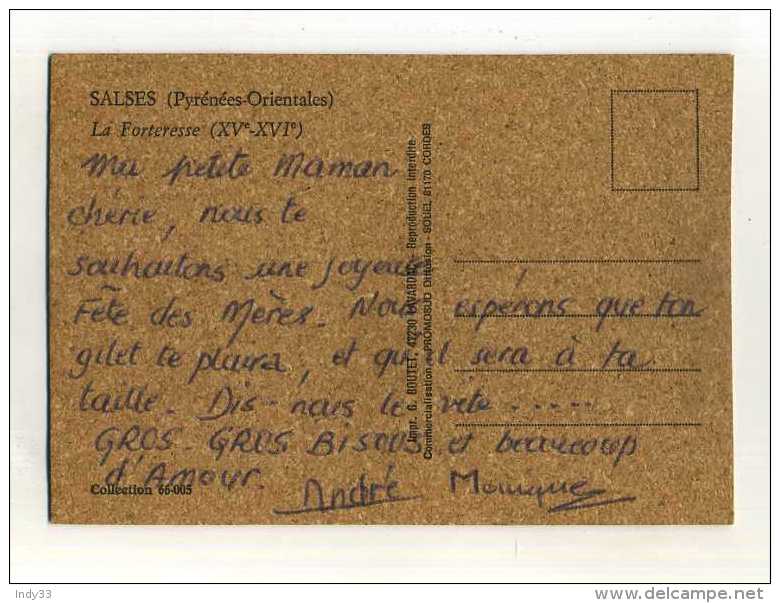 SALSES (Pyrénées-Orientales)
La Forteresse (XVe-XVIe)
Ma petite Maman
chérie, nous te
souhaitons une joyeuse
Fête des Mères. Nous espérons que ton
gilet te plaira, et qu'il sera à ta
taille. Dis-nous le vite.....
GROS. GROS BISOUS et beaucoup
d'Amour.
André Monique
Collection 66-005
Impr. G. BOUTET, 41230 Reproduction Interdite
Commercialisation - PROMOSUD Diffusion - SOUEL 81170 CORDES
Indy33
delcampe.net